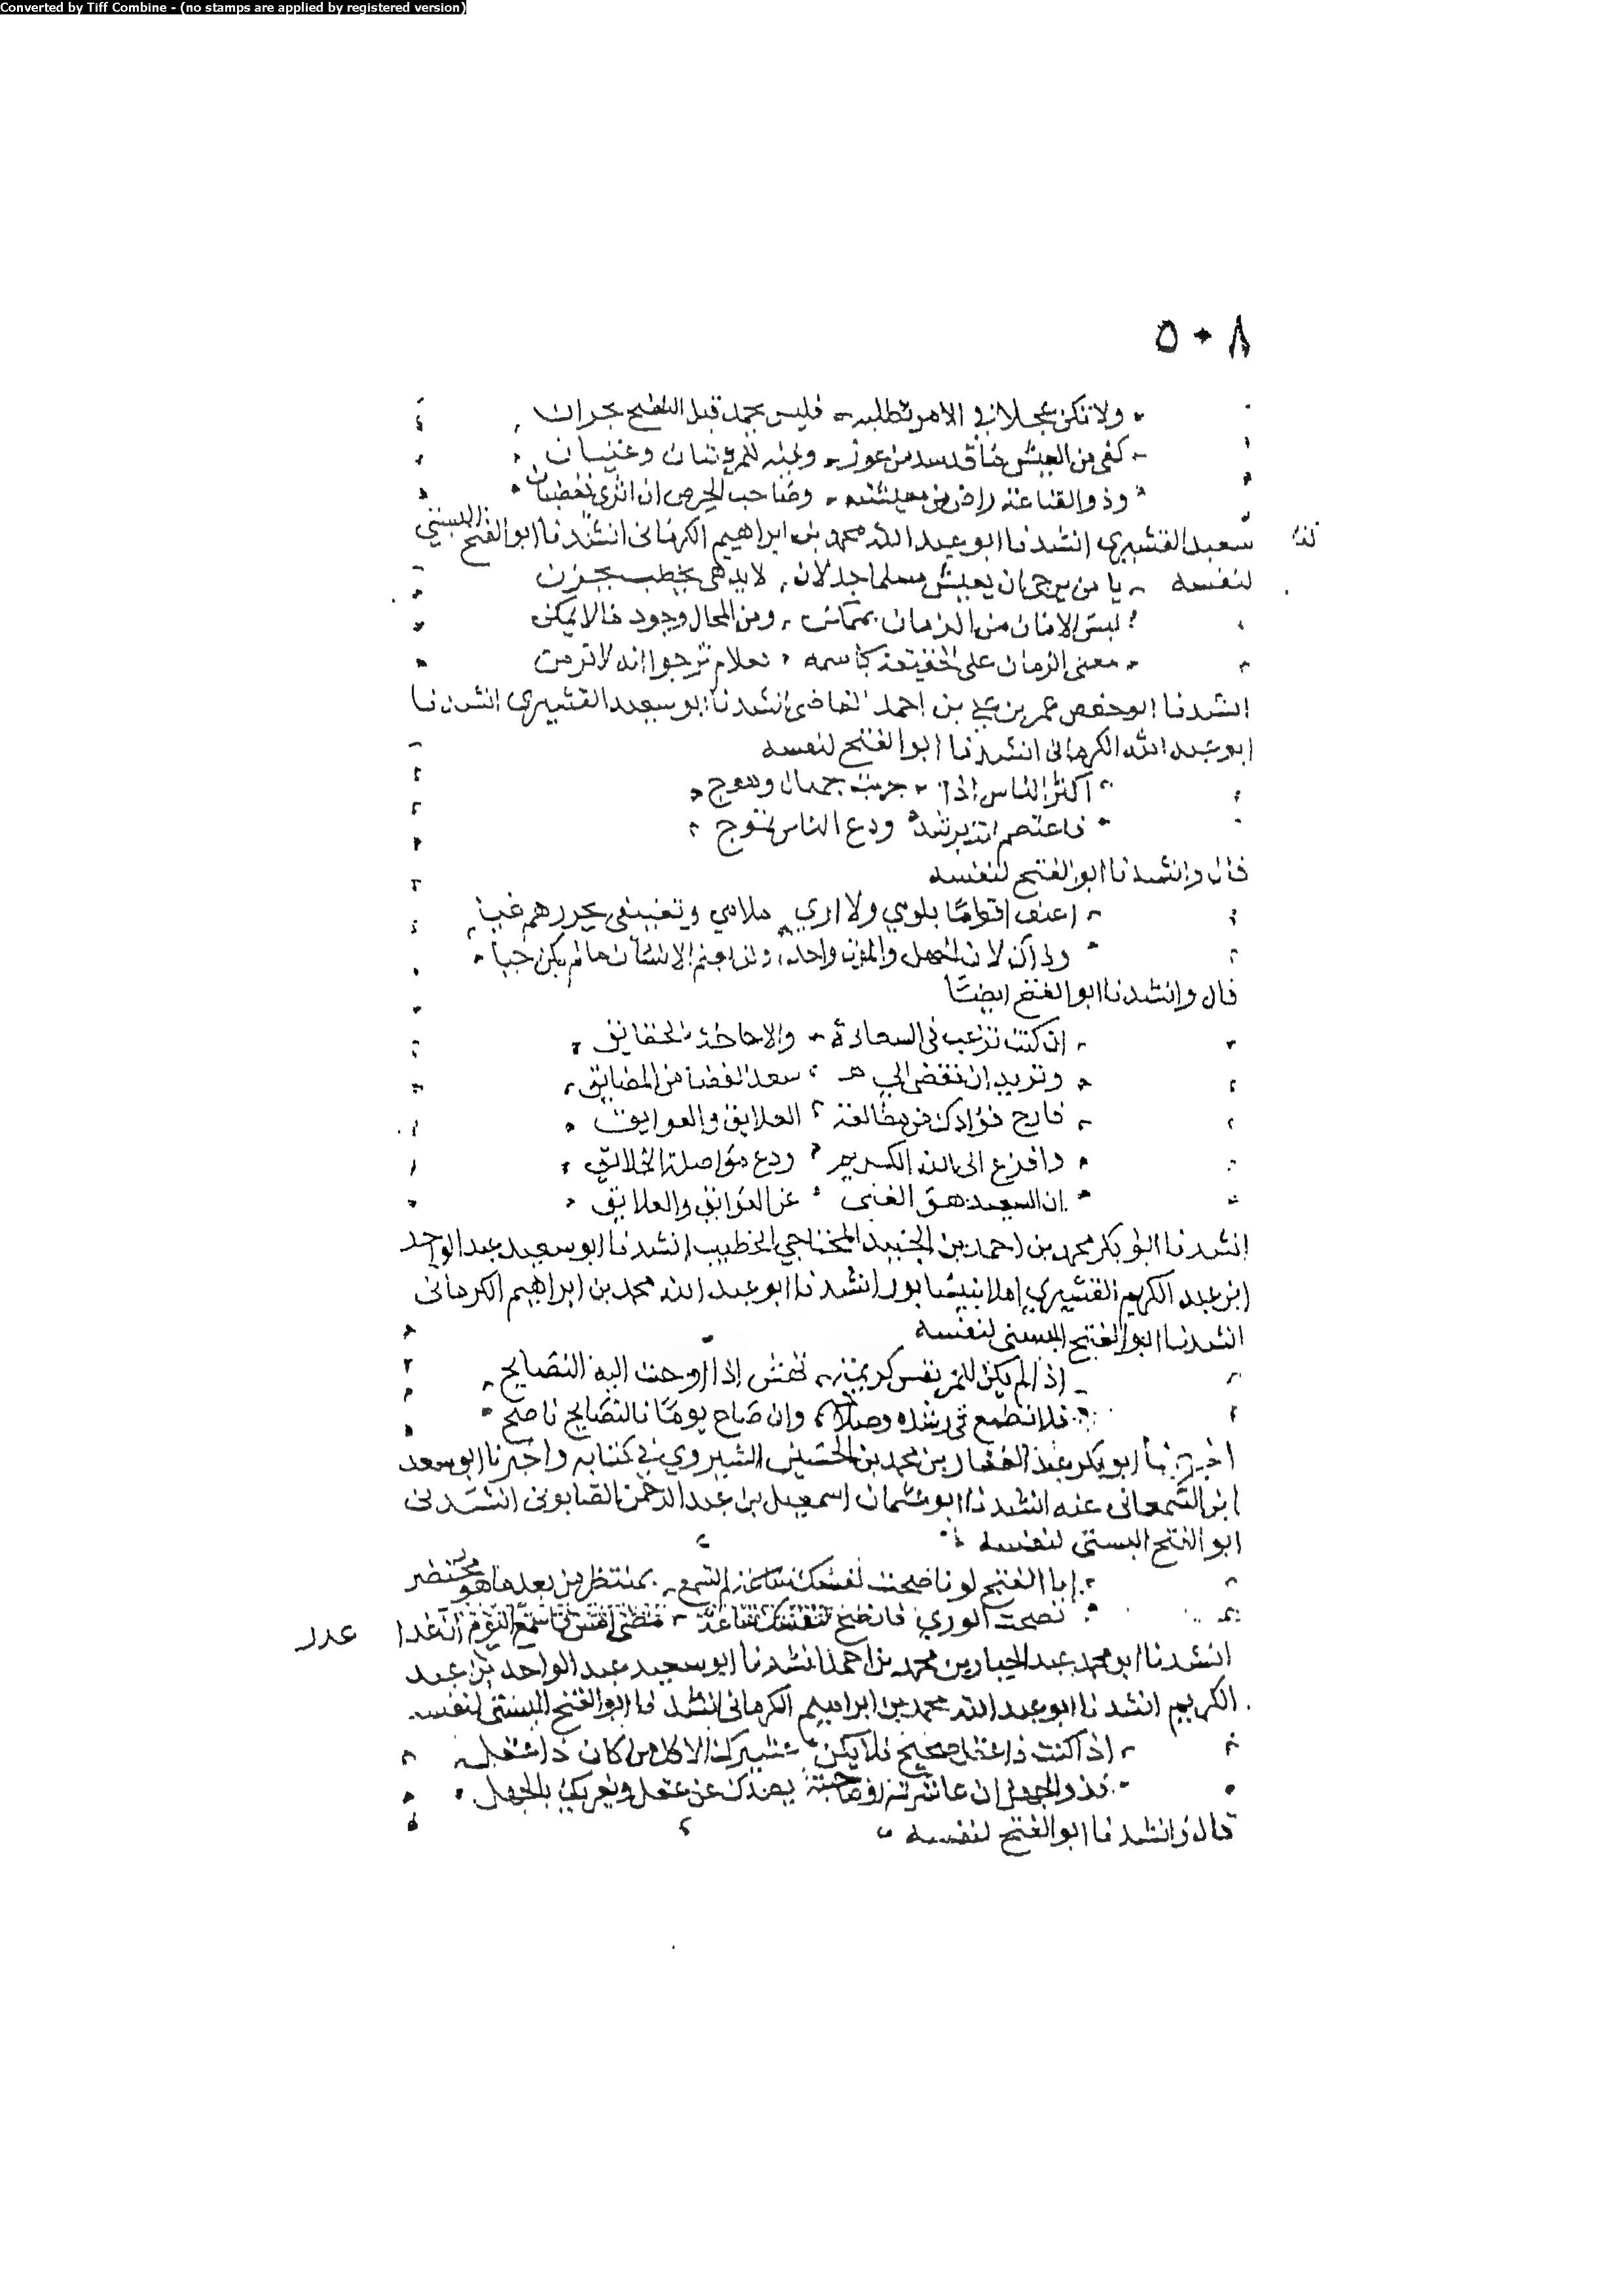 Converted by Tiff Combine - (no stamps are applied by registered version)
٥٠٨
ولا تكن عجلا في الامر تطلبه فليس يحمد قبل النضج بحران
كفى من العيش ما قد سد من عوز وفيه للمرء وغنيان
وذو القناعة راض من معيشته وصاحب الحرص ان اثرى فغضبان
سعيد القشيري انشدنا ابو عبد الله محمد بن ابراهيم الكرماني انشدنا ابو الفتح البستي
لنفسه يا من يرجى ان يعيش مسلما جذلان لا يدهى بخطب يحزن
ليس الامان من الزمان بممكن ومن المحال وجود ما لا يمكن
معنى الزمان على الحقيقة كاسمه فعلام ترجوا انه لا يزمن
انشدنا ابو حفص عمر بن علي بن احمد القاضي انشدنا ابو سعيد القشيري انشدنا
ابو عبد الله الكرماني انشدنا ابو الفتح لنفسه
اكثر الناس اذا جربت جهال وهوج
فاعتصم بالله ترشد ودع الناس تموج
قال وانشدنا ابو الفتح لنفسه
اعنف اقواما بلومي ولا ارى ملامي وتعنيفي يحررهم غبا
وذاك لان الجهل والموت واحد ولن يعلم الانسان ما لم يكن حيا
قال وانشدنا ابو الفتح ايضا
ان كنت ترغب في السعادة والاحاطة بالحقايق
وتريد ان تفضي الى سعة الفضا من المضايق
فارح فؤادك من مطالعة العلايق والعوايق
وافزع الى الله الكريم ودع مواصلة الخلائق
ان السعيد هو الغني عن العوايق والعلايق
انشدنا ابو بكر محمد بن احمد بن الجنيد الخطيب انشدنا ابو سعيد عبد الواحد
ابن عبد الكريم القشيري املا بنيسابور انشدنا ابو عبد الله محمد بن ابراهيم الكرماني
انشدنا ابو الفتح البستي لنفسه
اذا لم يكن للمرء نفس كريمة تهش اذا اوحت اليه النصايح
فلا تطمع في رشده وصلاحه وان صاح يوما بالنصايح ناصح
اخبرنا ابو بكر عبد الغفار بن محمد بن الحسين الشيروي في كتابه واخبرنا ابو سعد
ابن السمعاني عنه انشدنا ابو عثمان اسمعيل بن عبد الرحمن الصابوني انشدني
ابو الفتح البستي لنفسه
ابا الفتح لو ناصحت نفسك ساعة لم بمنتظر من بعد ما هو محتضر
نصحت الورى فانصح لنفسك ساعة مضى امس فاستمع اليوم ان غدا عدر
انشدنا ابو محمد عبد الجبار بن محمد بن احمد انشدنا ابو سعيد عبد الواحد بن عبد
الكريم انشدنا ابو عبد الله محمد بن ابراهيم الكرماني انشدنا ابو الفتح البستي لنفسه
اذا كنت ذا عقل صحيح فلا يكن عشيرك الا كل من كان ذا عقل
فذو الجهل ان عاشرته او صحبته يصدك عن عقل ويغريك بالجهل
قال وانشدنا ابو الفتح لنفسه